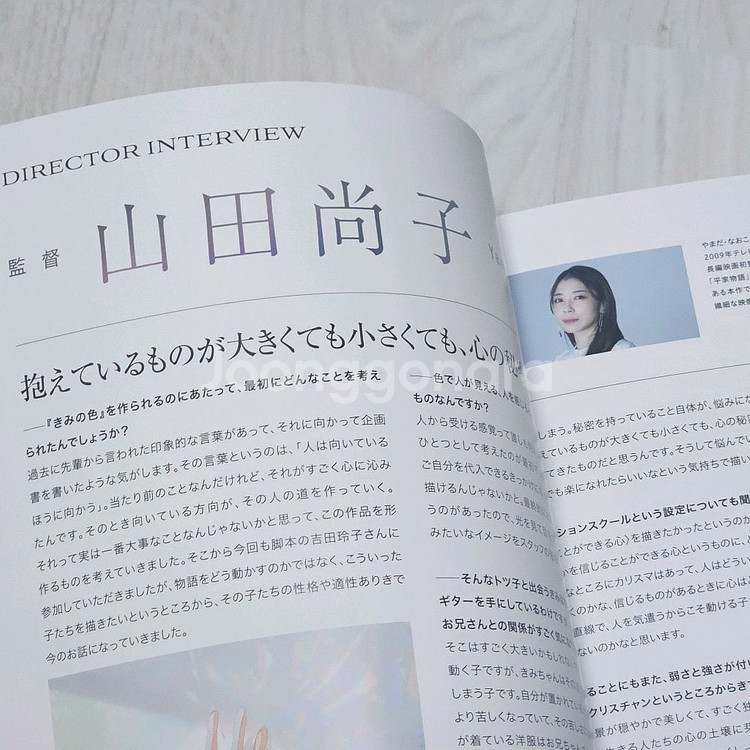 DIRECTOR INTERVIEW
監督 山田尚子
抱えているものが大きくても小さくても、心の
Joonggonara
──『きみの色』を作られるのにあたって、最初にどんなことを考え
られたんでしょうか?
過去に先輩から言われた印象的な言葉があって、それに向かって企画
書を書いたような気がします。その言葉というのは、「人は向いている
ほうに向かう」。当たり前のことなんだけれど、それがすごく心に沁み
たんです。そのとき向いている方向が、その人の道を作っていく。
それって実は一番大事なことなんじゃないかと思って、この作品を形
作るものを考えていきました。そこから今回も脚本の吉田玲子さんに
参加していただきましたが、物語をどう動かすのかではなく、こういった
子たちを描きたいというところから、その子たちの性格や適性ありきで
今のお話になっていきました。
──色で人が見える、人を
ものなんですか?
人から受ける感覚って誰しも
ひとつとして考えたのが
ご自分を代入できるきっかけに
描けるんじゃないかと。
うのがあったので、光を見て
みたいなイメージをスタッフの
──そんなトツ子と出会う
ギターを手にしているわけです
お兄さんとの関係がすごく気に
そこはすごく大きいかもしれない
動く子ですが、きみちゃんは
しまう子です。自分が置かれてい
より苦しくなっていて、その苦し
が着ている洋服はお兄ちゃんの
やまだ・なおこ
2009年テレビ
長編映画初
『平家物語』
ある本作で
繊細な映像
しまう。秘密を持っていること自体が、悩みにな
えているものが大きくても小さくても、心の秘
てきたものだと思うんです。そうして悩んでい
も楽になれたらいいなという気持ちで描い
ションスクールという設定についても聞
ことができる心〉を描きたかったというのが
を信じることができる心というものに、と
なところにカリスマはあって、人はどうい
くのかな、信じるものがあるときに心は
直線で、人を気遣うからこそ動ける子た
ないのかなと思います。
ることにもまた、弱さと強さが付い
クリスチャンというところからきて
景が穏やかで美しくて、すごく独
生きる人たちの心の土壌に